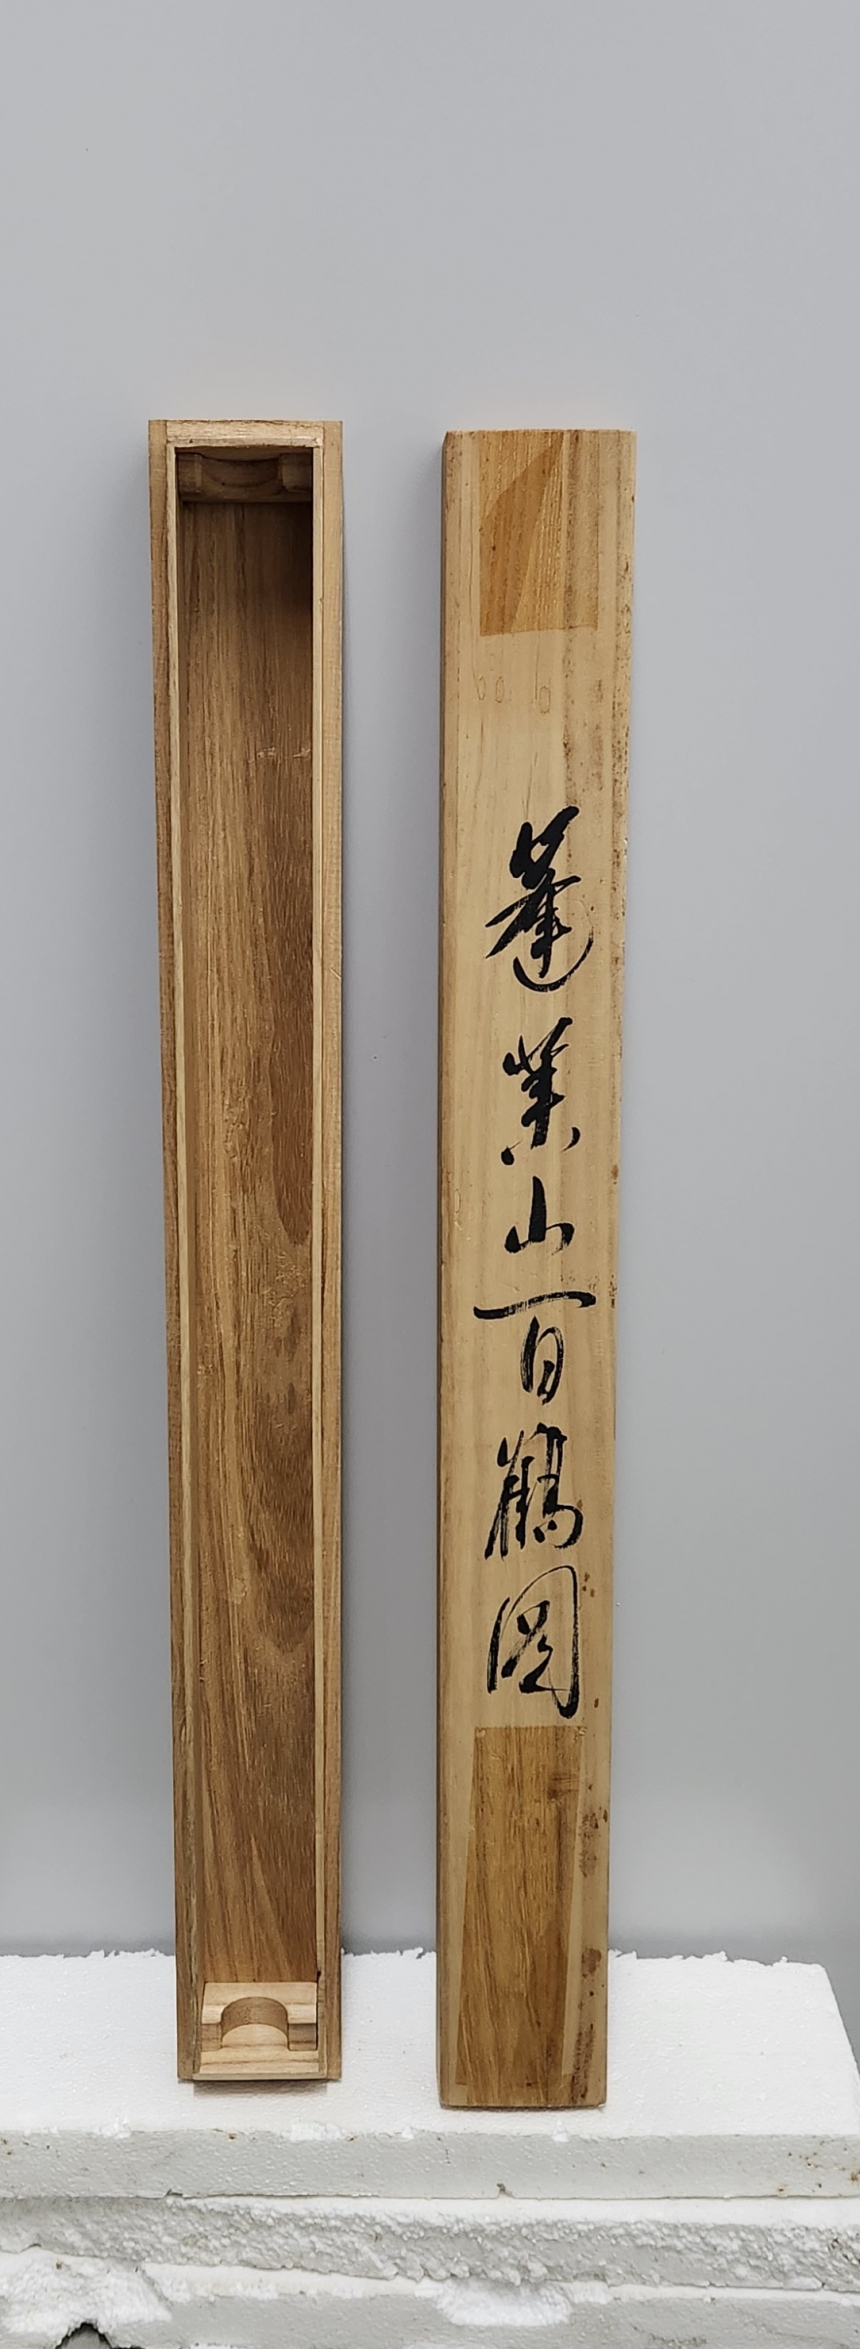 蓬莱山百鶴図